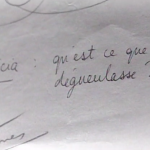 cia : qu'est ce que
dégueulasse ?